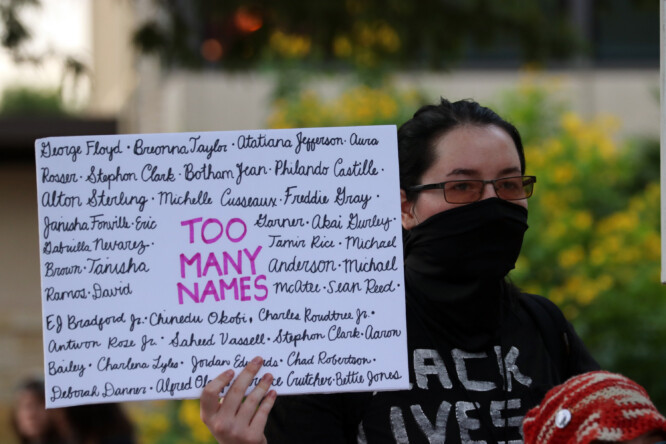 George Floyd · Breonna Taylor · Atatiana Jefferson · Aura
Rosser · Stephon Clark · Botham Jean · Philando Castille ·
Alton Sterling · Michelle Cusseaux · Freddie Gray ·
Janisha Fonville · Eric Garner · Akai Gurley ·
Gabriella Nevarez · Tamir Rice · Michael
Brown · Tanisha Anderson · Michael
Ramos · David McAtee · Sean Reed ·
TOO
MANY
NAMES
EJ Bradford Jr · Chinedu Okobi · Charles Roudtree Jr ·
Antwon Rose Jr · Saheed Vassell · Stephon Clark · Aaron
Bailey · Charleena Lyles · Jordan Edwards · Chad Robertson ·
Deborah Danner · Alfred Crutcher · Bettie Jones
LACK
LIVES